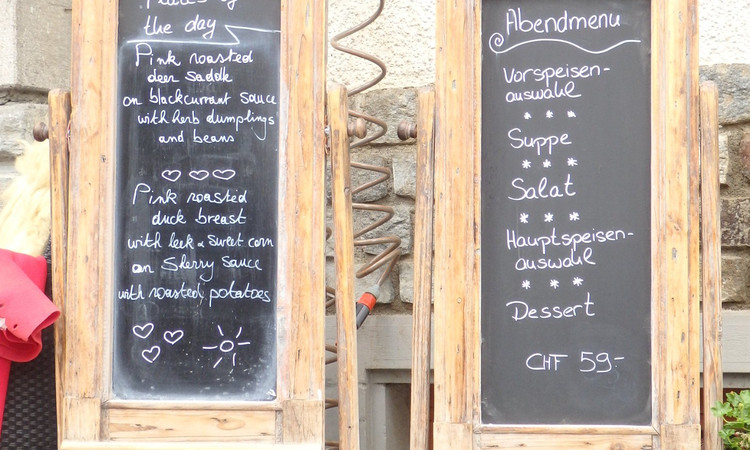 Plates of
the day
Pink roasted
deer saddle
on blackcurrant sauce
with herb dumplings
and beans
Pink roasted
duck breast
with leek & sweet corn
on Sherry sauce
with roasted potatoes
Abendmenu
Vorspeisen-
auswahl
* * *
Suppe
* * *
Salat
* * *
Hauptspeisen-
auswahl
* * *
Dessert
CHF 59-